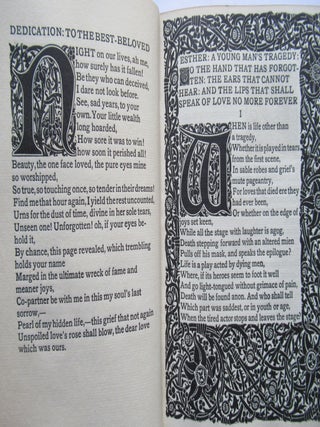 DEDICATION: TO THE BEST-BELOVED
NIGHT on our lives, ah me,
how surely has it fallen!
Be they who can deceived,
I dare not look before.
See, sad years, to your
own. Your little wealth
long hoarded,
How sore it was to win!
how soon it perished all!
Beauty, the one face loved, the pure eyes mine
so worshipped,
So true, so touching once, so tender in their dreams!
Find me that hour again, I yield the rest uncounted,
Urns for the dust of time, divine in her sole tears,
Unseen one! Unforgotten! oh, if your eyes be-
hold it,
By chance, this page revealed, which trembling
holds your name
Marged in the ultimate wreck of fame and
meaner joys,
Co-partner be with me in this my soul's last
sorrow,—
Pearl of my hidden life,—this grief that not again
Unspoiled love's rose shall blow, the dear love
which was ours.
ESTHER: A YOUNG MAN'S TRAGEDY:
TO THE HAND THAT HAS FORGOT-
TEN: THE EARS THAT CANNOT
HEAR: AND THE LIPS THAT SHALL
SPEAK OF LOVE NO MORE FOREVER
I
WHEN is life other than
a tragedy,
Whether it is played in tears
from the first scene,
In sable robes and grief's
mute pageantry,
For loves that died ere they
had ever been,
Or whether on the edge of
joys set keen,
While all the stage with laughter is agog,
Death stepping forward with an altered mien
Pulls off his mask, and speaks the epilogue?
Life is a play acted by dying men,
Where, if its heroes seem to foot it well
And go light-tongued without grimace of pain,
Death will be found anon. And who shall tell
Which part was saddest, or in youth or age,
When the tired actor stops and leaves the stage?